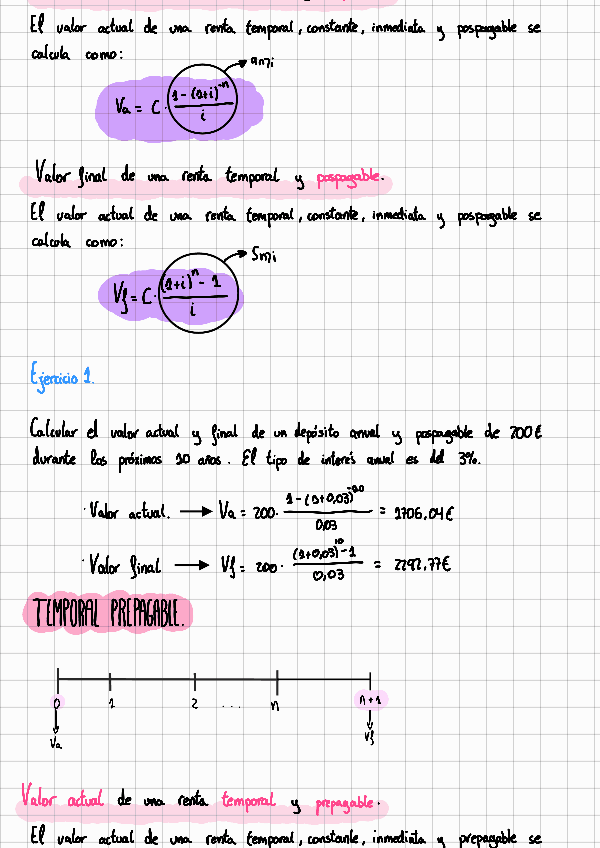 El valor actual de una renta temporal, constante, inmediata y pospagable se
calcula como:
Va = C · (1 - (1+i)^-n) / i → an¬i
Valor final de una renta temporal y pospagable.
El valor actual de una renta temporal, constante, inmediata y pospagable se
calcula como:
Vf = C · ((1+i)^n - 1) / i → Sn¬i
Ejercicio 1.
Calcular el valor actual y final de un depósito anual y pospagable de 200€
durante los próximos 10 años. El tipo de interés anual es del 3%.
· Valor actual. → Va = 200 · (1 - (1+0,03)^-10) / 0,03 = 1706,04€
· Valor final → Vf = 200 · ((1+0,03)^10 - 1) / 0,03 = 2292,77€
TEMPORAL PREPAGABLE.
0 1 2 ... n n+1
Va Vf
Valor actual de una renta temporal y prepagable.
El valor actual de una renta temporal, constante, inmediata y prepagable se